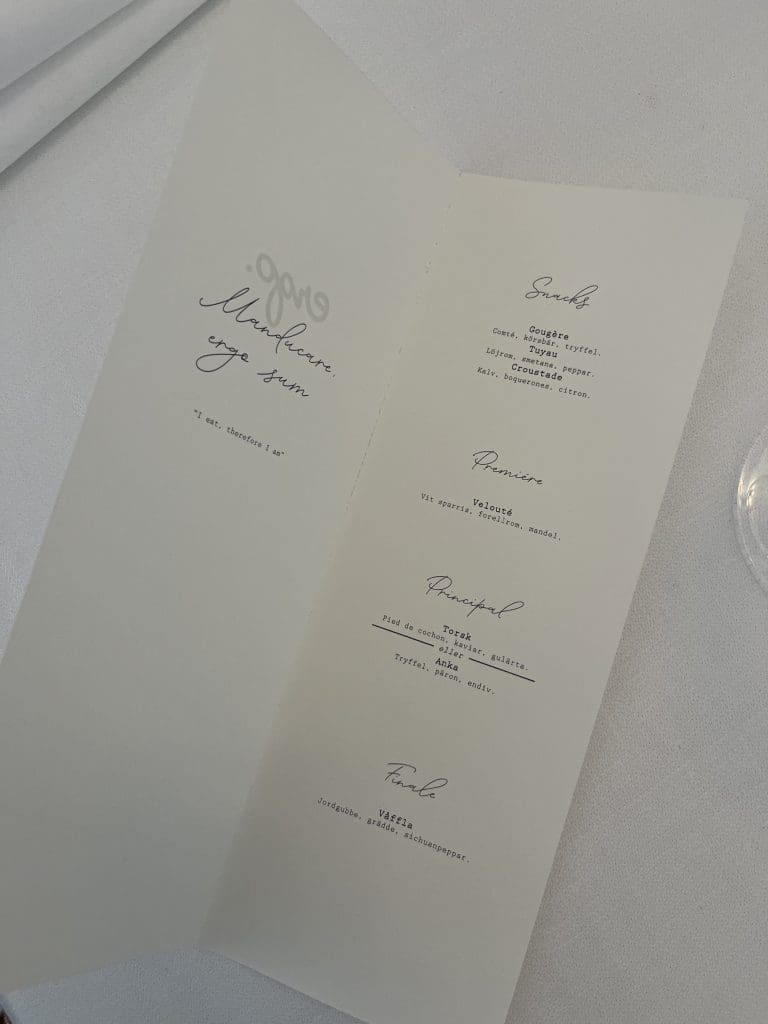 ergo.
Manducare,
ergo sum
"I eat, therefore I am"
Snacks
Gougère
Comté, körsbär, tryffel.
Tuyau
Löjrom, smetana, peppar.
Croustade
Kalv, boquerones, citron.
Première
Velouté
Vit sparris, forellrom, mandel.
Principal
Torsk
Pied de cochon, kaviar, gulärta.
eller
Anka
Tryffel, päron, endiv.
Finale
Våffla
Jordgubbe, grädde, sichuanpeppar.